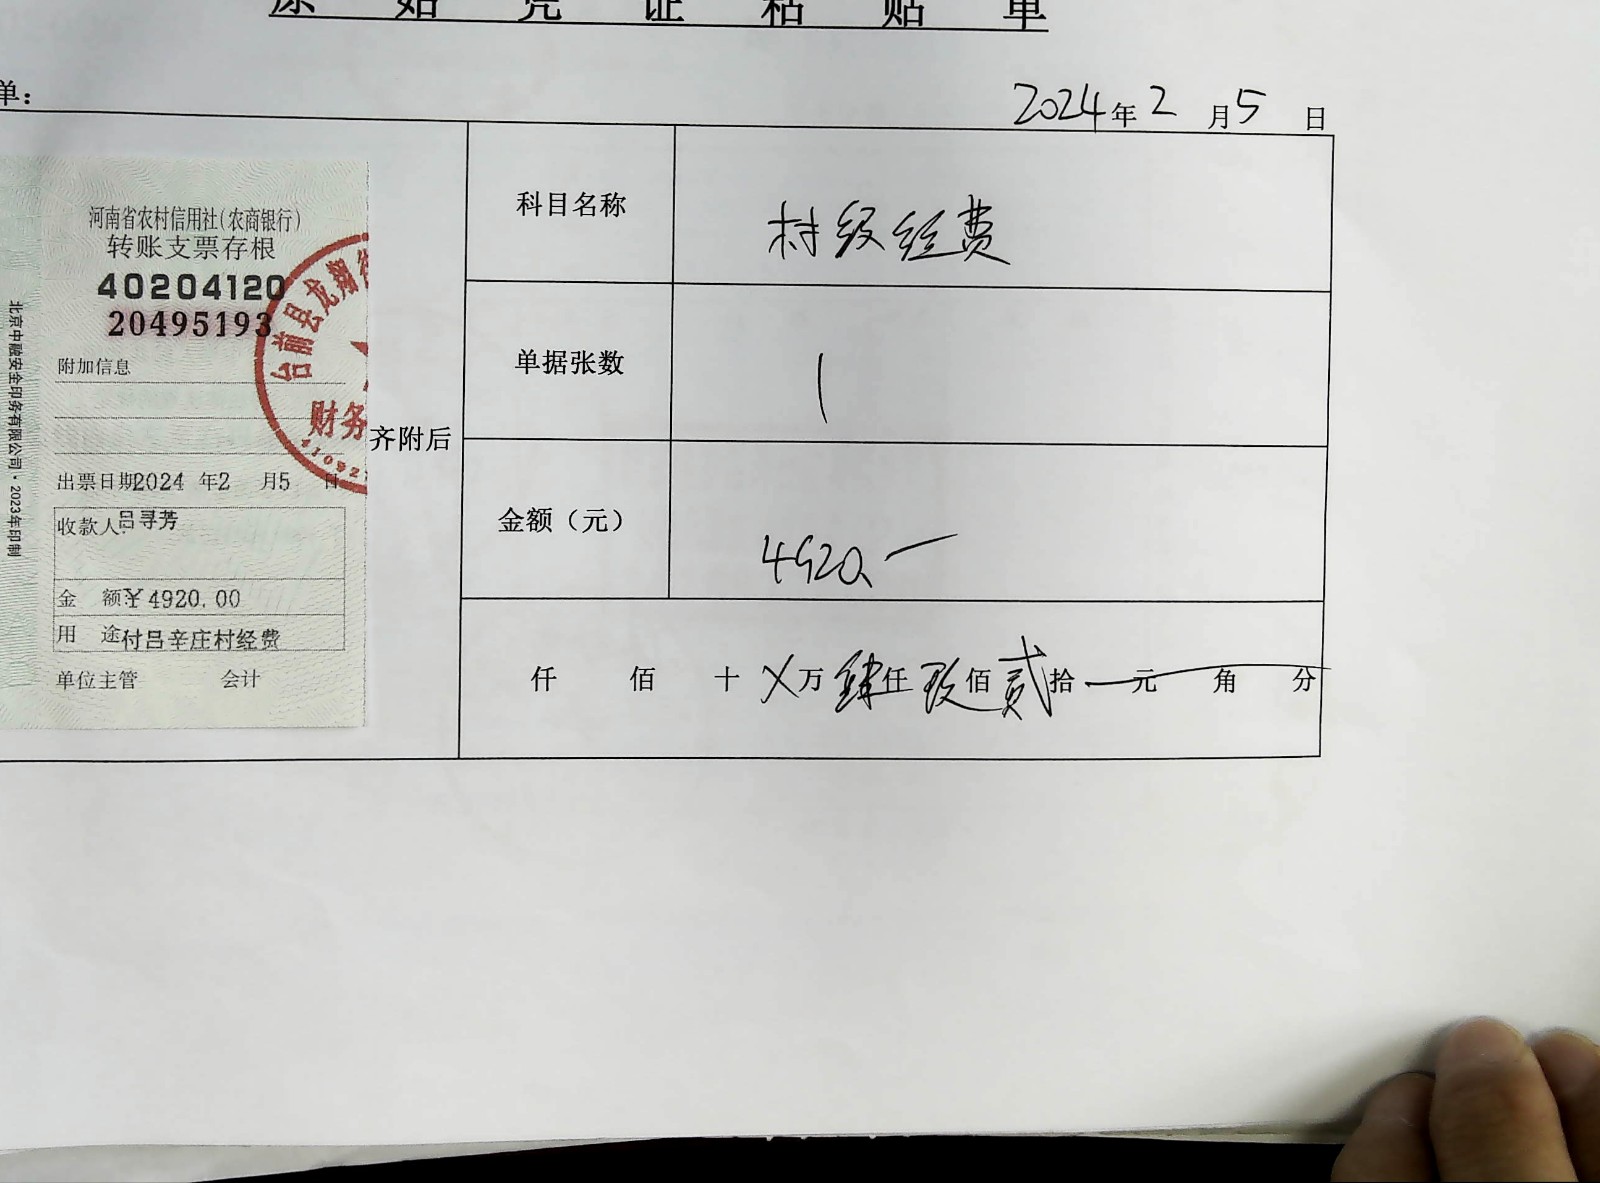 原始凭证粘贴单
单：
2024年2月5日
河南省农村信用社(农商银行)
转账支票存根
40204120
20495193
附加信息
出票日期2024 年2 月5 日
收款人:吕寻芳
金 额¥4920.00
用 途付吕辛庄村经费
单位主管 会计
北京中融安全印务有限公司·2023年印制
台前县龙翔街
财务
齐附后
科目名称 村级经费
单据张数 1
金额（元） 4920.一
仟 佰 十 X万 肆仟 玖佰 贰拾 元 角 分